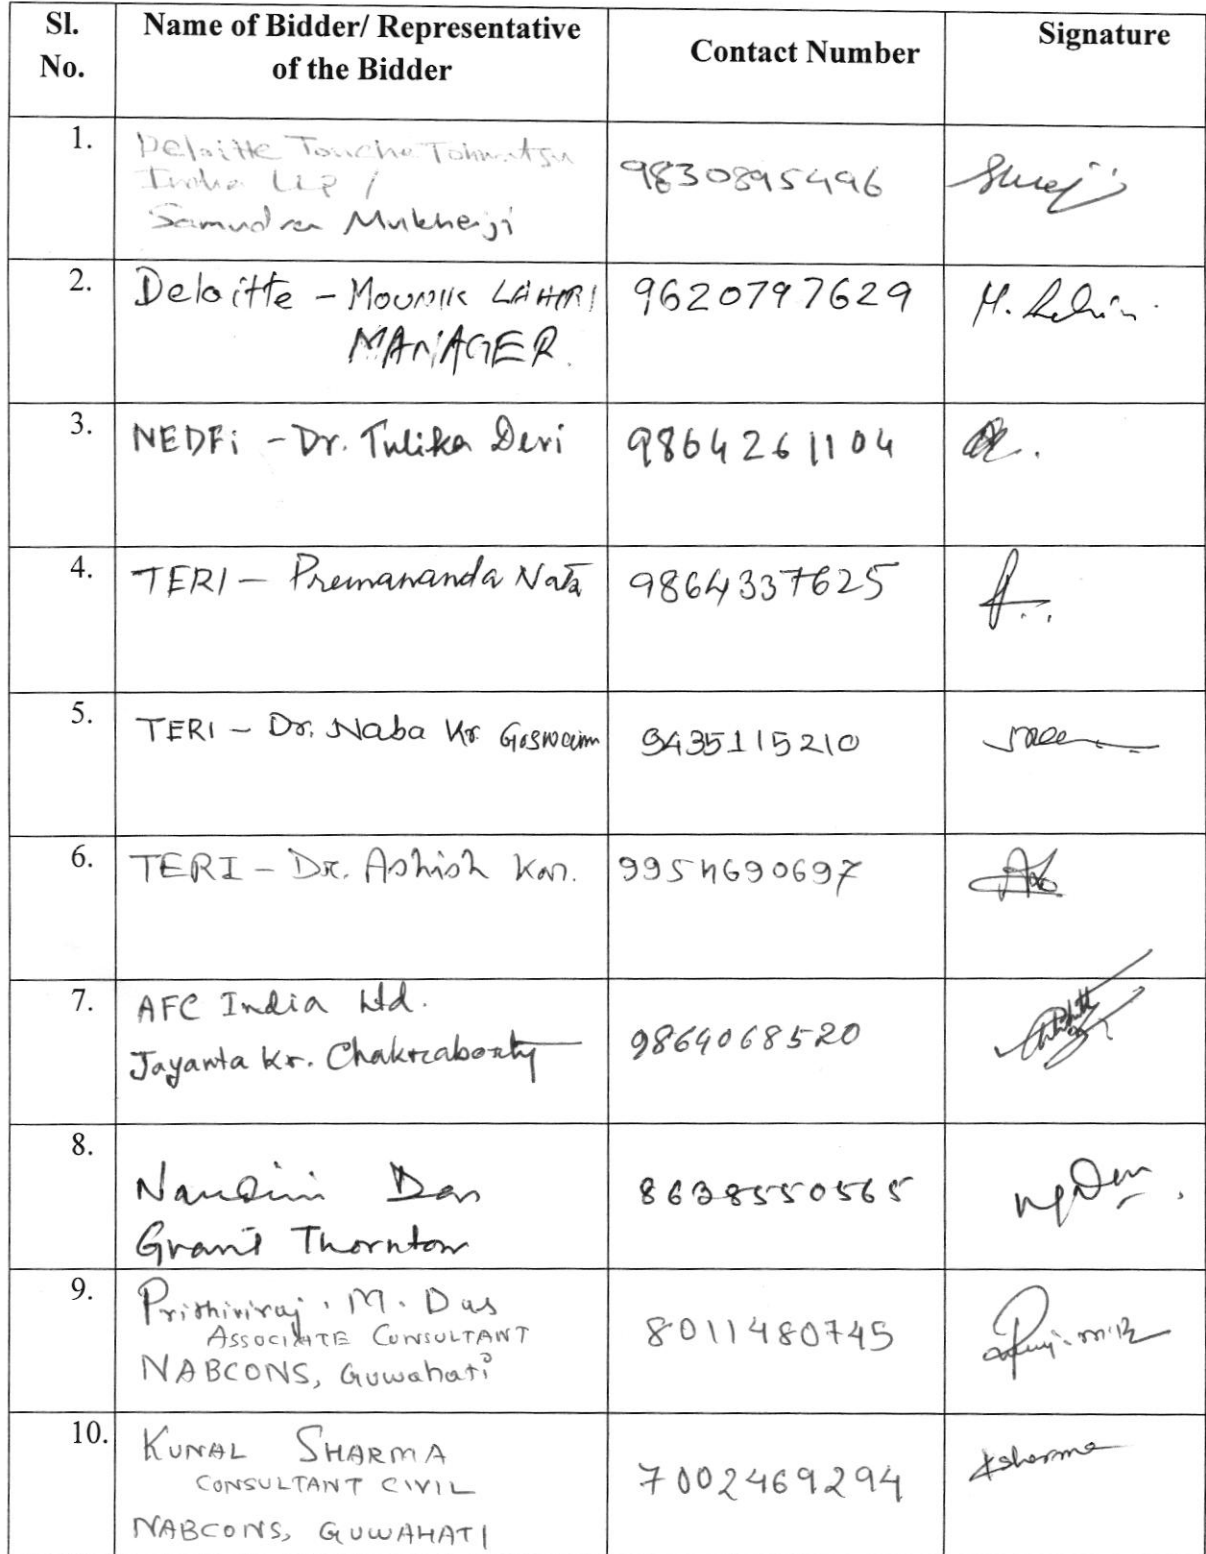 Sl. No. Name of Bidder/ Representative of the Bidder Contact Number Signature
1. Deloitte Touche Tohmatsu
India LLP /
Samudra Mukherji 9830895496
2. Deloitte - MOUMIK LAHIRI 9620797629 M. Lahiri
MANAGER.
3. NEDFi - Dr. Tulika Devi 9864261104
4. TERI - Premananda Nata 9864337625
5. TERI - Dr. Naba Kr Goswami 9435115210
6. TERI - Dr. Ashish Kar. 9954690697
7. AFC India Ltd.
Jayanta Kr. Chakraborty 9864068520
8. Nandini Das 8638550565
Grant Thornton
9. Prithiviraj . M. Das
ASSOCIATE CONSULTANT 8011480745
NABCONS, Guwahati
10. KUNAL SHARMA ksharma
CONSULTANT CIVIL 7002469294
NABCONS, GUWAHATI